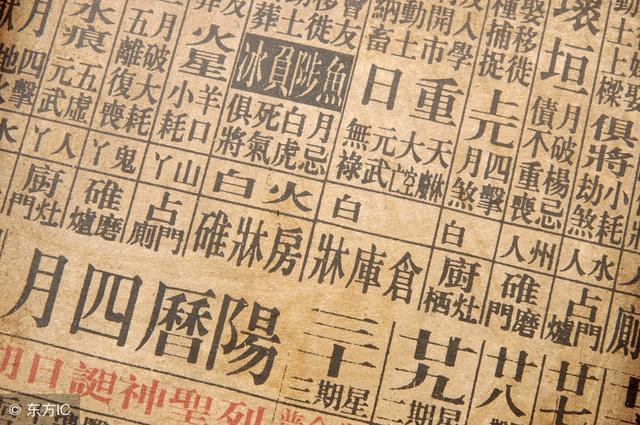 娶移徙
種捕捉
開市
人學
動土
納畜
移徙
壞垣
上元
重日
魚陟負冰
火星
水痕
俱將
小耗
劫煞
月破楊忌
債不重喪
四擊
月煞
大空
元武
無祿
月忌
白虎
死氣
俱將
羊口
小耗
月破大耗
五離復喪
五虛
元武
四擊
水人
州人
白
白
火白
山丫
鬼丫
人丫
占門爐
碓磨門
廚灶栖
倉庫牀
房牀碓
占門廁
碓磨爐
廚灶門
廿七
廿八
廿九
星期二
三十
星期三
陽曆四月
列聖神誕日期
© 东方IC